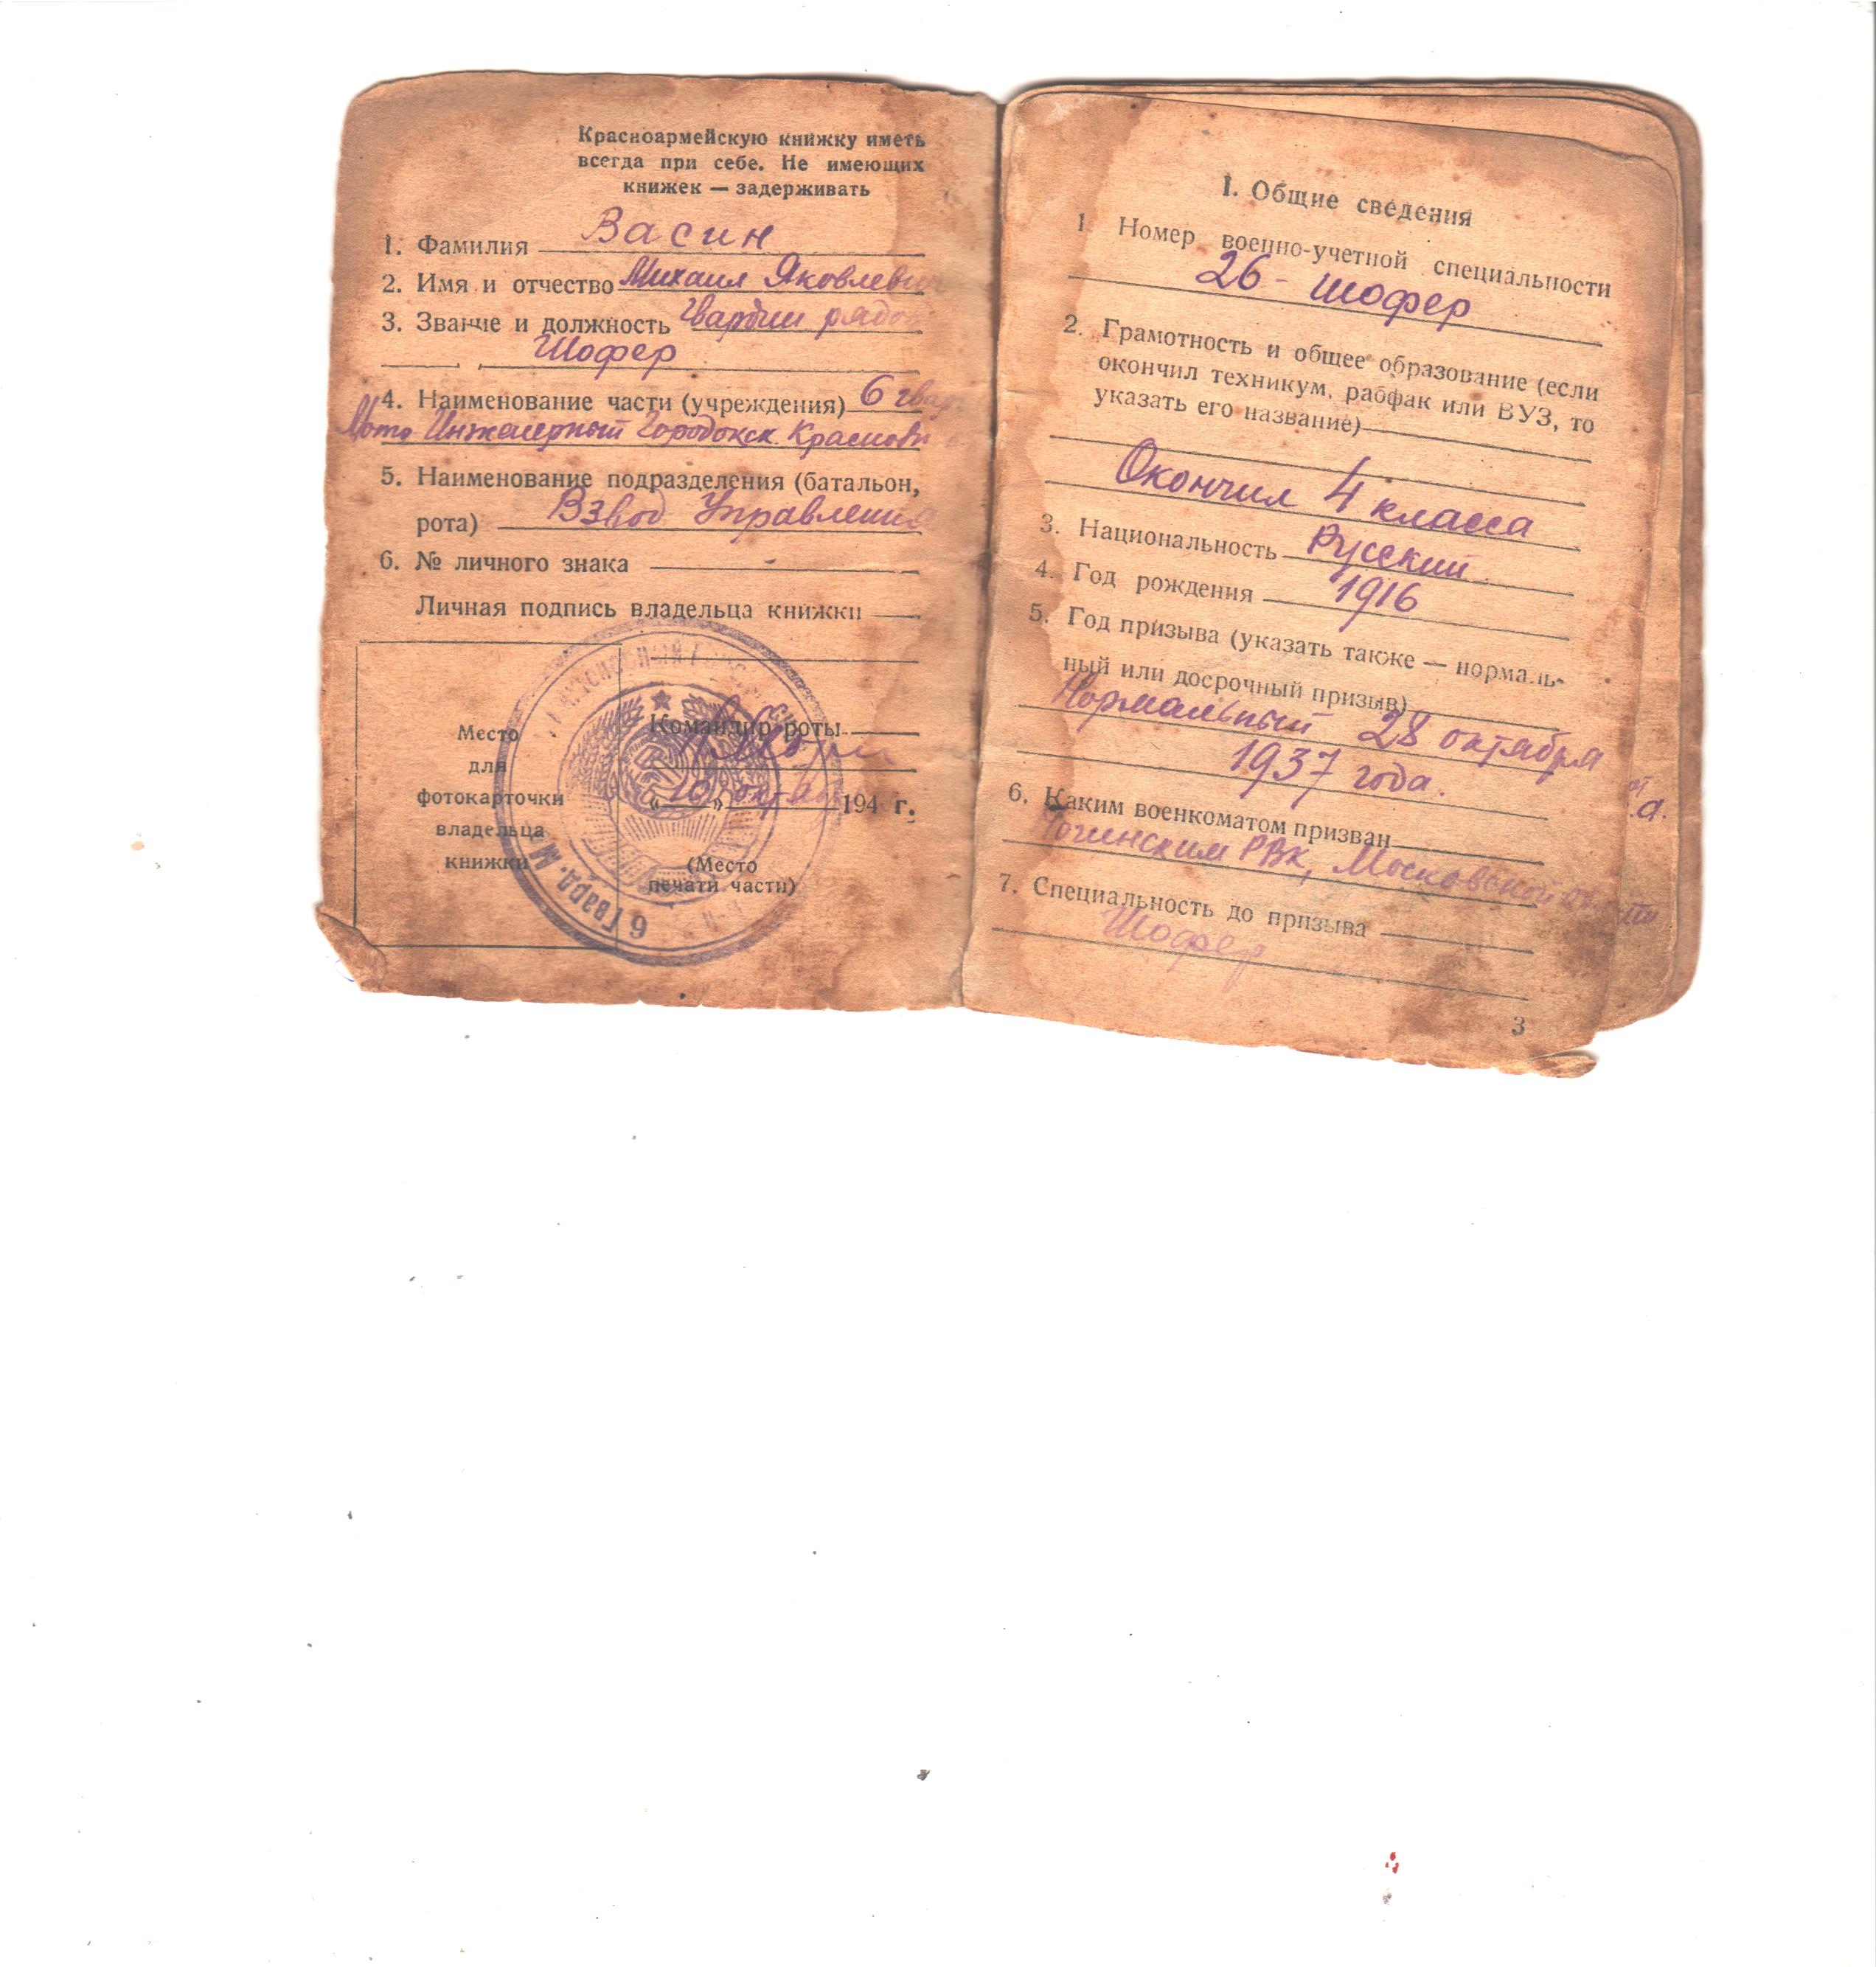 Красноармейскую книжку иметь
всегда при себе. Не имеющих
книжек — задерживать
1. Фамилия Васин
2. Имя и отчество Михаил Яковлевич
3. Звание и должность Гвардии рядов
Шофер
4. Наименование части (учреждения) 6 гвар
Мото Инженерный Городокск. Краснозн
5. Наименование подразделения (батальон,
рота) Взвод Управления
6. № личного знака —
Личная подпись владельца книжки
Место
для
фотокарточки
владельца
книжки
Командир роты
«10» 194 г.
(Место
печати части)
6 Гвард. М
I. Общие сведения
1. Номер военно-учетной специальности
26 - шофер
2. Грамотность и общее образование (если
окончил техникум, рабфак или ВУЗ, то
указать его название)
Окончил 4 класса
3. Национальность Русский
4. Год рождения 1916
5. Год призыва (указать также — нормаль-
ный или досрочный призыв)
Нормальный 28 октября
1937 года.
6. Каким военкоматом призван
РВК, Московской области
7. Специальность до призыва
Шофер
3